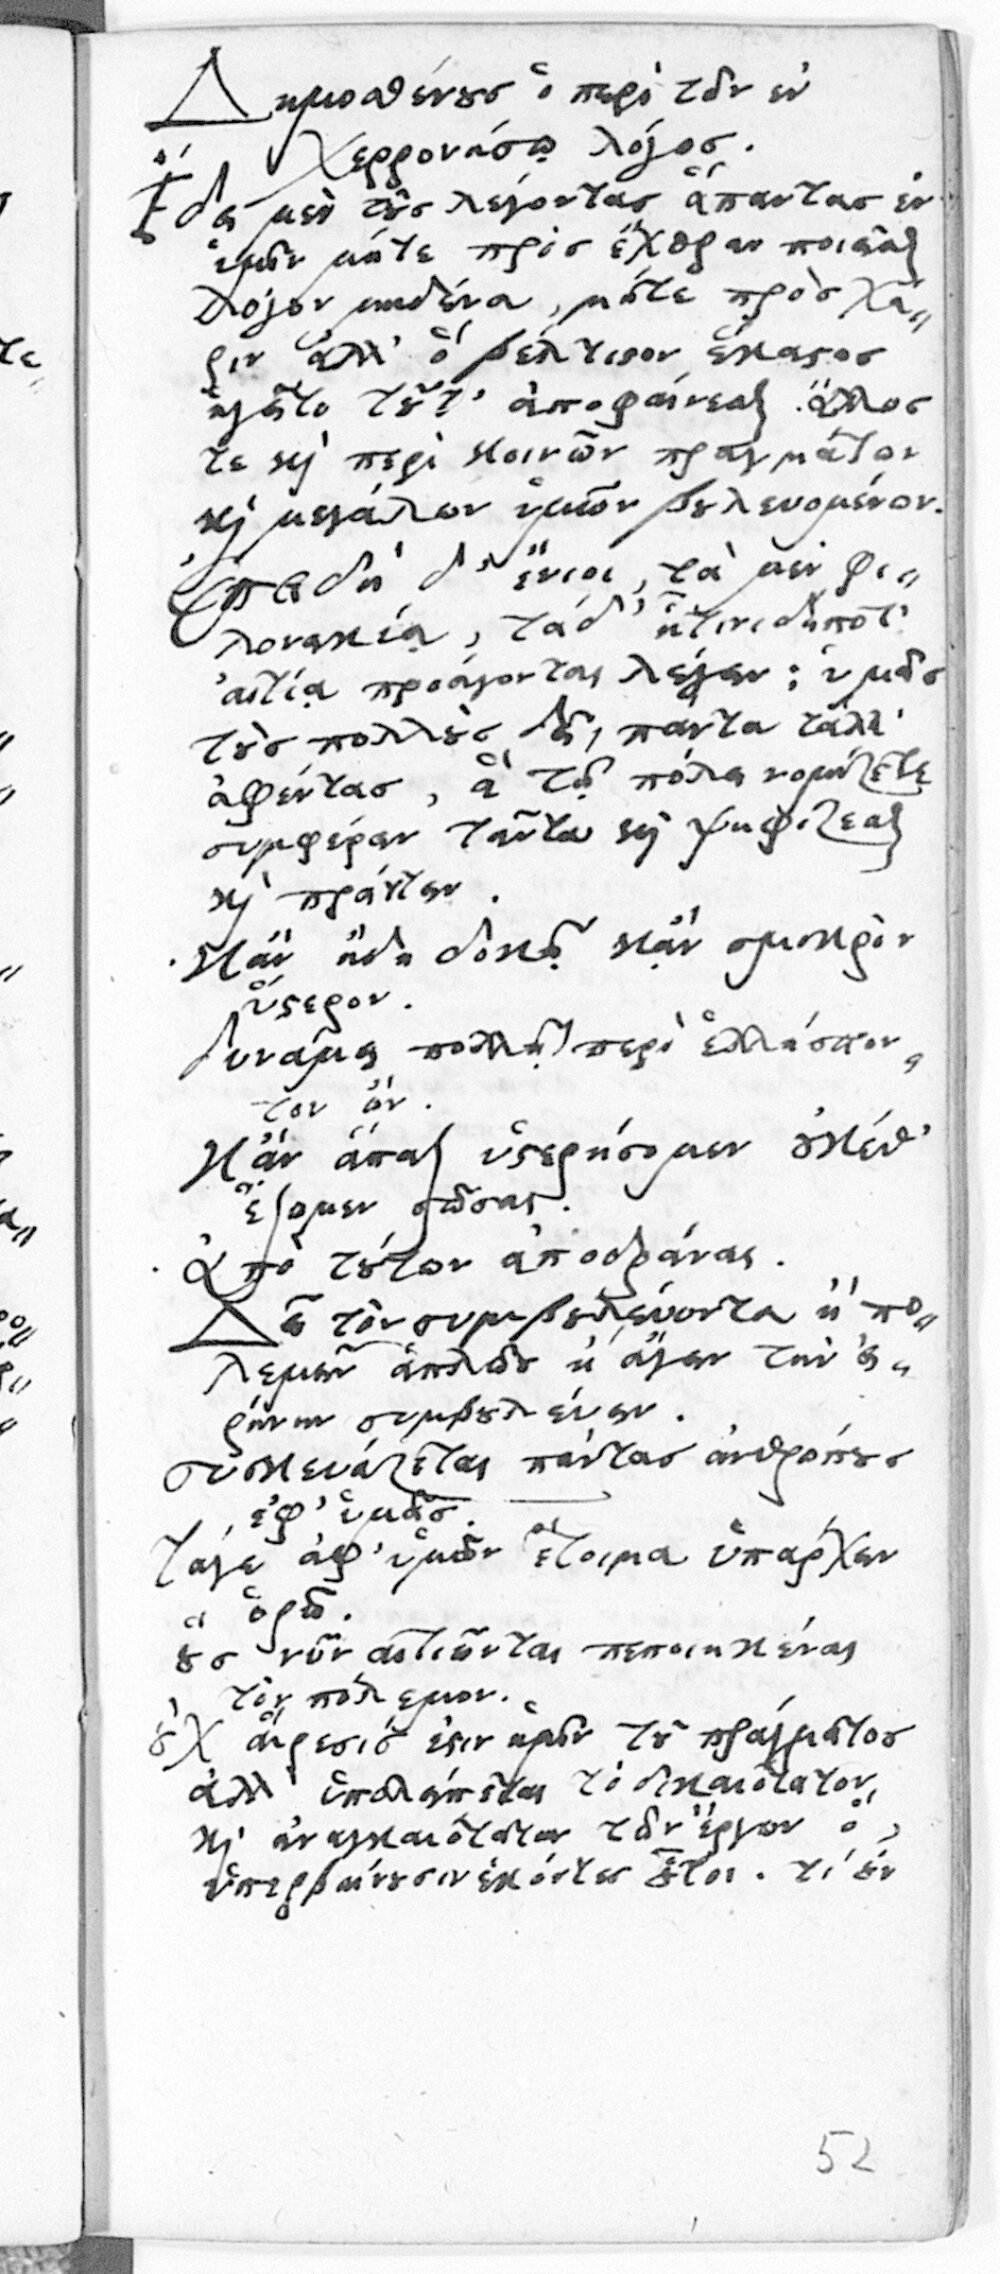 Δημοσθένους ὁ περὶ τῶν ἐν
Χερρονήσῳ λόγος.
Ἔδει μὲν τοὺς λέγοντας ἅπαντας ἐν
ὑμῖν μήτε πρὸς ἔχθραν ποιεῖσθαι
λόγον μηδένα, μήτε πρὸς χά„
ριν ἀλλ' ὃ βέλτιστον ἕκαστος
ἡγεῖτο τοῦτ' ἀποφαίνεσθαι. ἄλλως
τε καὶ περὶ κοινῶν πραγμάτων
καὶ μεγάλων ὑμῶν βουλευομένων.
Ἐπειδὴ δ' ἔνιοι, τὰ μὲν φι„
λονεικίᾳ, τὰ δ' ᾗτινιδήποτ'
αἰτίᾳ προάγονται λέγειν; ὑμᾶς
τοὺς πολλοὺς δεῖ, πάντα τἆλλ'
ἀφέντας, ἃ τῇ πόλει νομίζετε
συμφέρειν ταῦτα καὶ ψηφίζεσθαι
καὶ πράττειν.
. κἂν ἤδη δοκῇ κἂν σμικρὸν
ὕστερον.
δυνάμει πολλῇ περὶ ἑλλήσπον„
τον ὤν.
κἂν ἅπαξ ὑστερήσομεν οὐκέθ'
ἕξομεν σῶσαι.
. ἀπὸ τούτων ἀποδρᾶναι.
Δεῖ τὸν συμβουλεύοντα ἢ πο„
λεμεῖν ἁπλῶς ἢ ἄγειν τὴν εἰ„
ρήνην συμβουλεύειν.
συσκευάζεται πάντας ἀνθρώπους
ἐφ' ὑμᾶς.
τάγε ἀφ' ὑμῶν ἕτοιμα ὑπάρχειν
ὁρῶ.
οὓς νῦν αἰτιῶνται πεποιηκέναι
τὸν πόλεμον.
οὐχ αἵρεσίς ἐστιν ἡμῖν τοῦ πράγματος
ἀλλ' ὑπολείπεται τὸ δικαιότατον
καὶ ἀναγκαιότατον τῶν ἔργων ὃ,
ὑπερβαίνουσιν ἑκόντες οὗτοι. τί οὖν
52